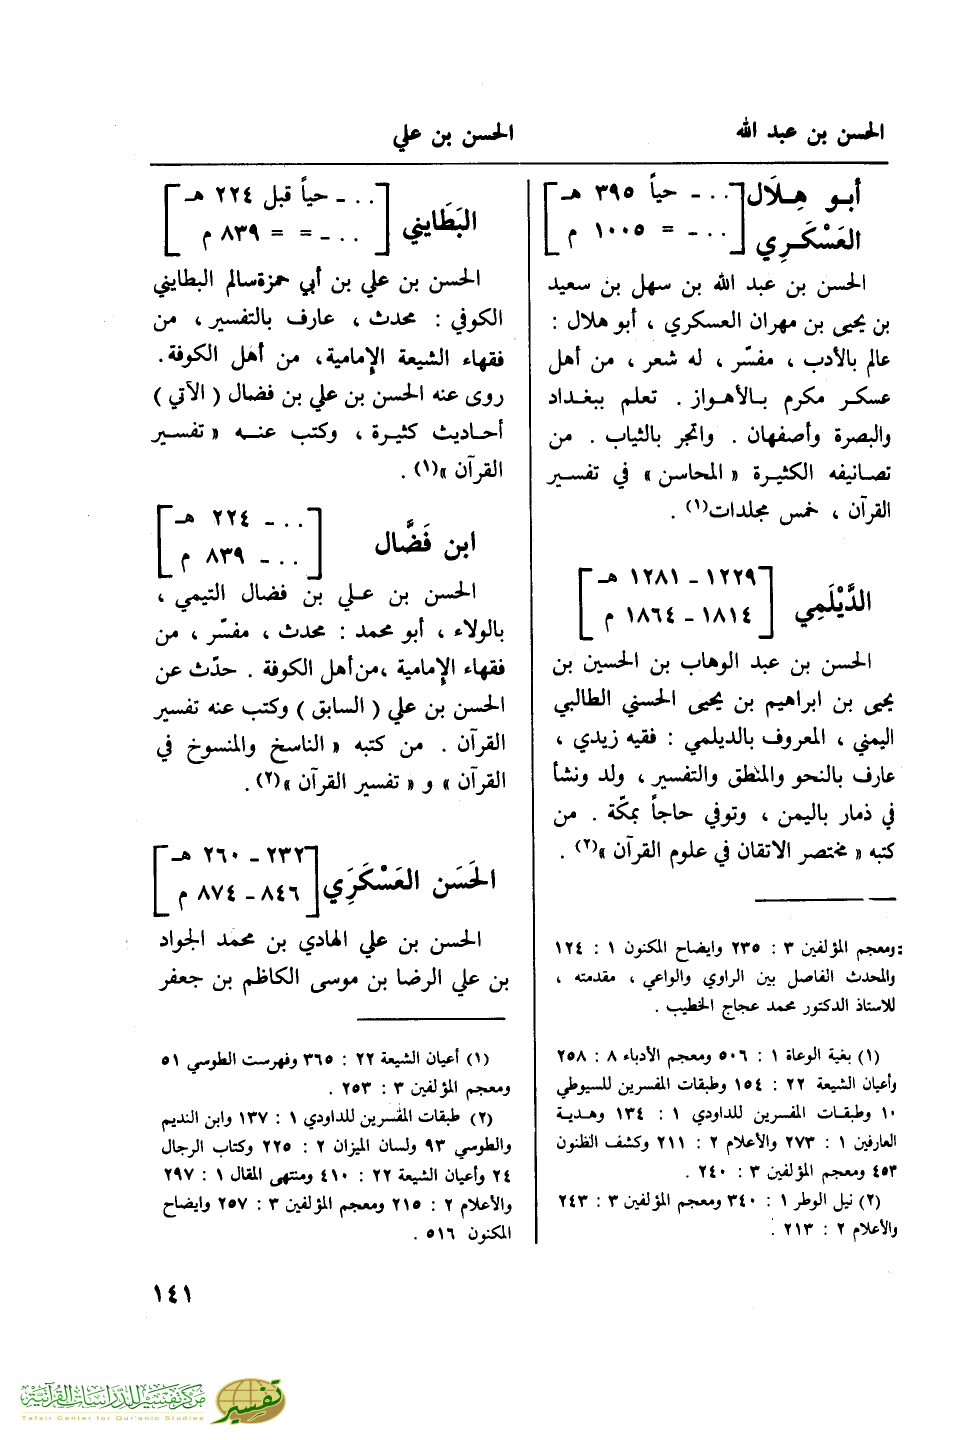 الحسن بن عبد الله
الحسن بن علي
أبو هِلَال
العَسْكَرِي
. . . ـ حياً ٣٩٥ هـ
. . . ـ = ١٠٠٥ م
الحسن بن عبد الله بن سهل بن سعيد
بن يحيى بن مهران العسكري ، أبو هلال :
عالم بالأدب ، مفسّر ، له شعر ، من أهل
عسكر مكرم بالأهواز . تعلم ببغداد
والبصرة وأصفهان . واتجر بالثياب . من
تصانيفه الكثيرة « المحاسن » في تفسير
القرآن ، خمس مجلدات(١) .
الدَّيْلَمِي
١٢٢٩ ـ ١٢٨١ هـ
١٨١٤ ـ ١٨٦٤ م
الحسن بن عبد الوهاب بن الحسين بن
يحيى بن ابراهيم بن يحيى الحسني الطالبي
اليمني ، المعروف بالديلمي : فقيه زيدي ،
عارف بالنحو والمنطق والتفسير ، ولد ونشأ
في ذمار باليمن ، وتوفي حاجاً بمكّة . من
كتبه « مختصر الاتقان في علوم القرآن »(٢) .
:ومعجم المؤلفين ٣ : ٢٣٥ وايضاح المكنون ١ : ١٢٤
والمحدث الفاصل بين الراوي والواعي ، مقدمته ،
للاستاذ الدكتور محمد عجاج الخطيب .
(١) بغية الوعاة ١ : ٥٠٦ ومعجم الأدباء ٨ : ٢٥٨
وأعيان الشيعة ٢٢ : ١٥٤ وطبقات المفسرين للسيوطي
١٠ وطبقات المفسرين للداودي ١ : ١٣٤ وهدية
العارفين ١ : ٢٧٣ والأعلام ٢ : ٢١١ وكشف الظنون
٤٥٣ ومعجم المؤلفين ٣ : ٢٤٠ .
(٢) نيل الوطر ١ : ٣٤٠ ومعجم المؤلفين ٣ : ٢٤٣
والأعلام ٢ : ٢١٣ .
البَطَايني
. . . ـ حياً قبل ٢٢٤ هـ
. . . ـ = = ٨٣٩ م
الحسن بن علي بن أبي حمزة سالم البطايني
الكوفي : محدث ، عارف بالتفسير ، من
فقهاء الشيعة الإمامية ، من أهل الكوفة .
روى عنه الحسن بن علي بن فضال ( الآتي )
أحاديث كثيرة ، وكتب عنه « تفسير
القرآن »(١) .
ابن فَضَّال
. . . ـ ٢٢٤ هـ
. . . ـ ٨٣٩ م
الحسن بن علي بن فضال التيمي ،
بالولاء ، أبو محمد : محدث ، مفسّر ، من
فقهاء الإمامية ،من أهل الكوفة . حدّث عن
الحسن بن علي ( السابق ) وكتب عنه تفسير
القرآن . من كتبه « الناسخ والمنسوخ في
القرآن » و « تفسير القرآن »(٢) .
الحَسَن العَسْكَرَي
٢٣٢ ـ ٢٦٠ هـ
٨٤٦ ـ ٨٧٤ م
الحسن بن علي الهادي بن محمد الجواد
بن علي الرضا بن موسى الكاظم بن جعفر
(١) أعيان الشيعة ٢٢ : ٣٦٥ وفهرست الطوسي ٥١
ومعجم المؤلفين ٣ : ٢٥٣ .
(٢) طبقات المفسرين للداودي ١ : ١٣٧ وابن النديم
والطوسي ٩٣ ولسان الميزان ٢ : ٢٢٥ وكتاب الرجال
٢٤ وأعيان الشيعة ٢٢ : ٤١٠ ومنتهى المقال ١ : ٢٩٧
والأعلام ٢ : ٢١٥ ومعجم المؤلفين ٣ : ٢٥٧ وايضاح
المكنون ٥١٦ .
١٤١
مركز تفسير للدراسات القرآنية
Tafsir Center for Qur'anic Studies
تفسير